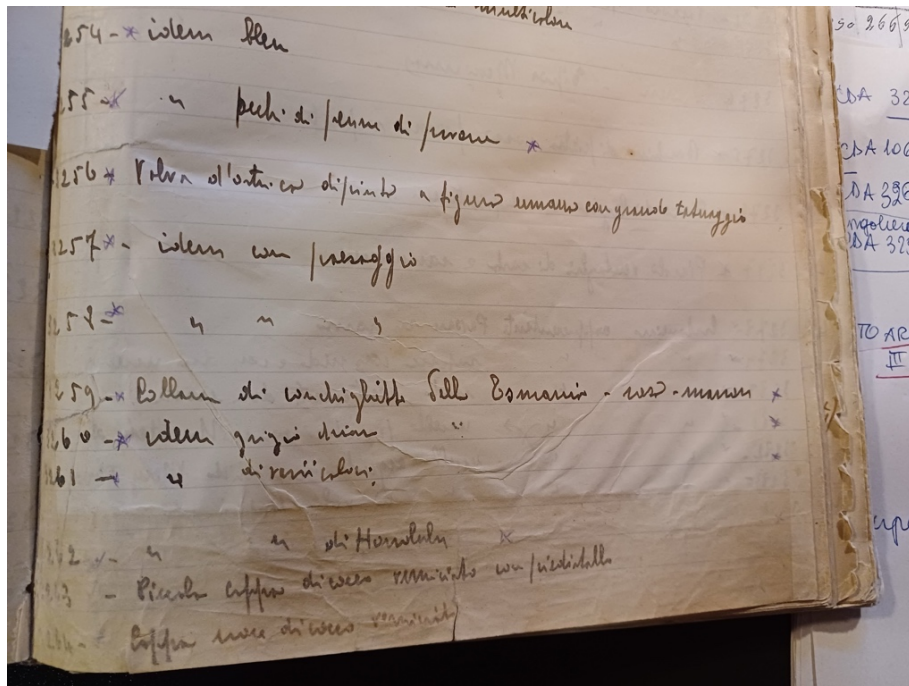 multicolore
254-* idem bleu
255-* " di penne di pavone *
1256* Valva d'ostrica dipinta a figura umana con grande tatuaggio
1257*- idem con paesaggio
1258-* " " "
1259-* Collana di conchigliette della Tasmania - rosa-marron *
1260-* idem grigio " *
1261-* " diversicolori *
262-- " " di Honolulu *
263 - Piccola coppa di cocco verniciato con piedistallo
264- Coppa noce di cocco
so 266
CDA 32
CDA 106
DA 326
DA 325
TO AR
III